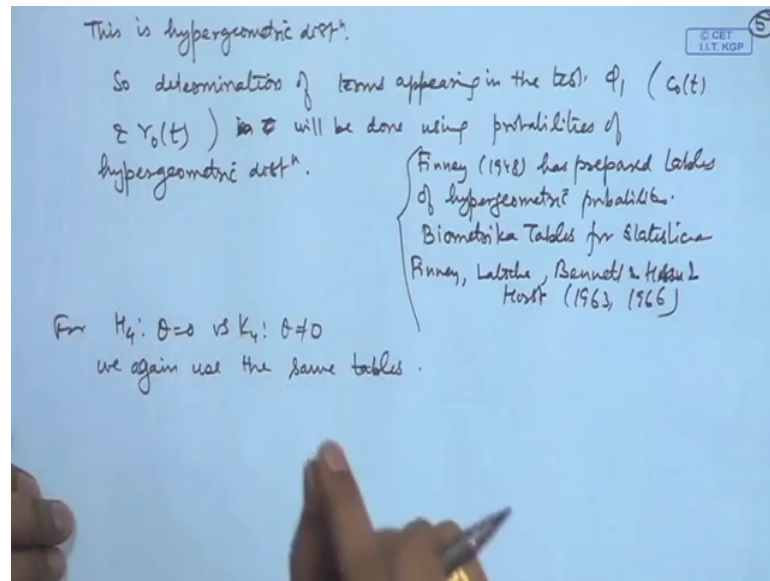 This is hypergeometric distⁿ.
© CET
I.I.T. KGP
5
So determination of terms appearing in the test φ₁ (c₀(t)
& γ₀(t)) will be done using probabilities of
hypergeometric distⁿ.
Finney (1948) has prepared tables
of hypergeometric probabilities.
Biometrika Tables for
Finney, Latscha, Bennett &
Horst (1963, 1966)
For H₄: θ=0 vs K₄: θ≠0
we again use the same tables.